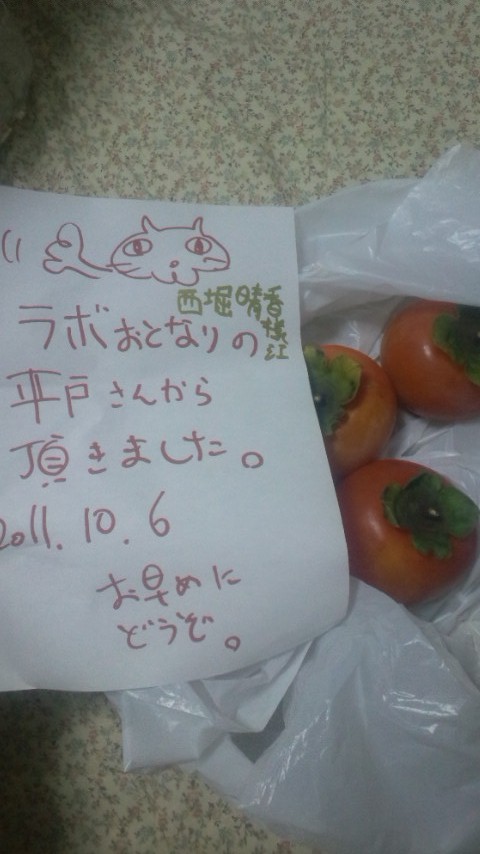 西堀晴香
様
ラボおとなりの
平戸さんから
頂きました。
2011.10.6
お早めに
どうぞ。